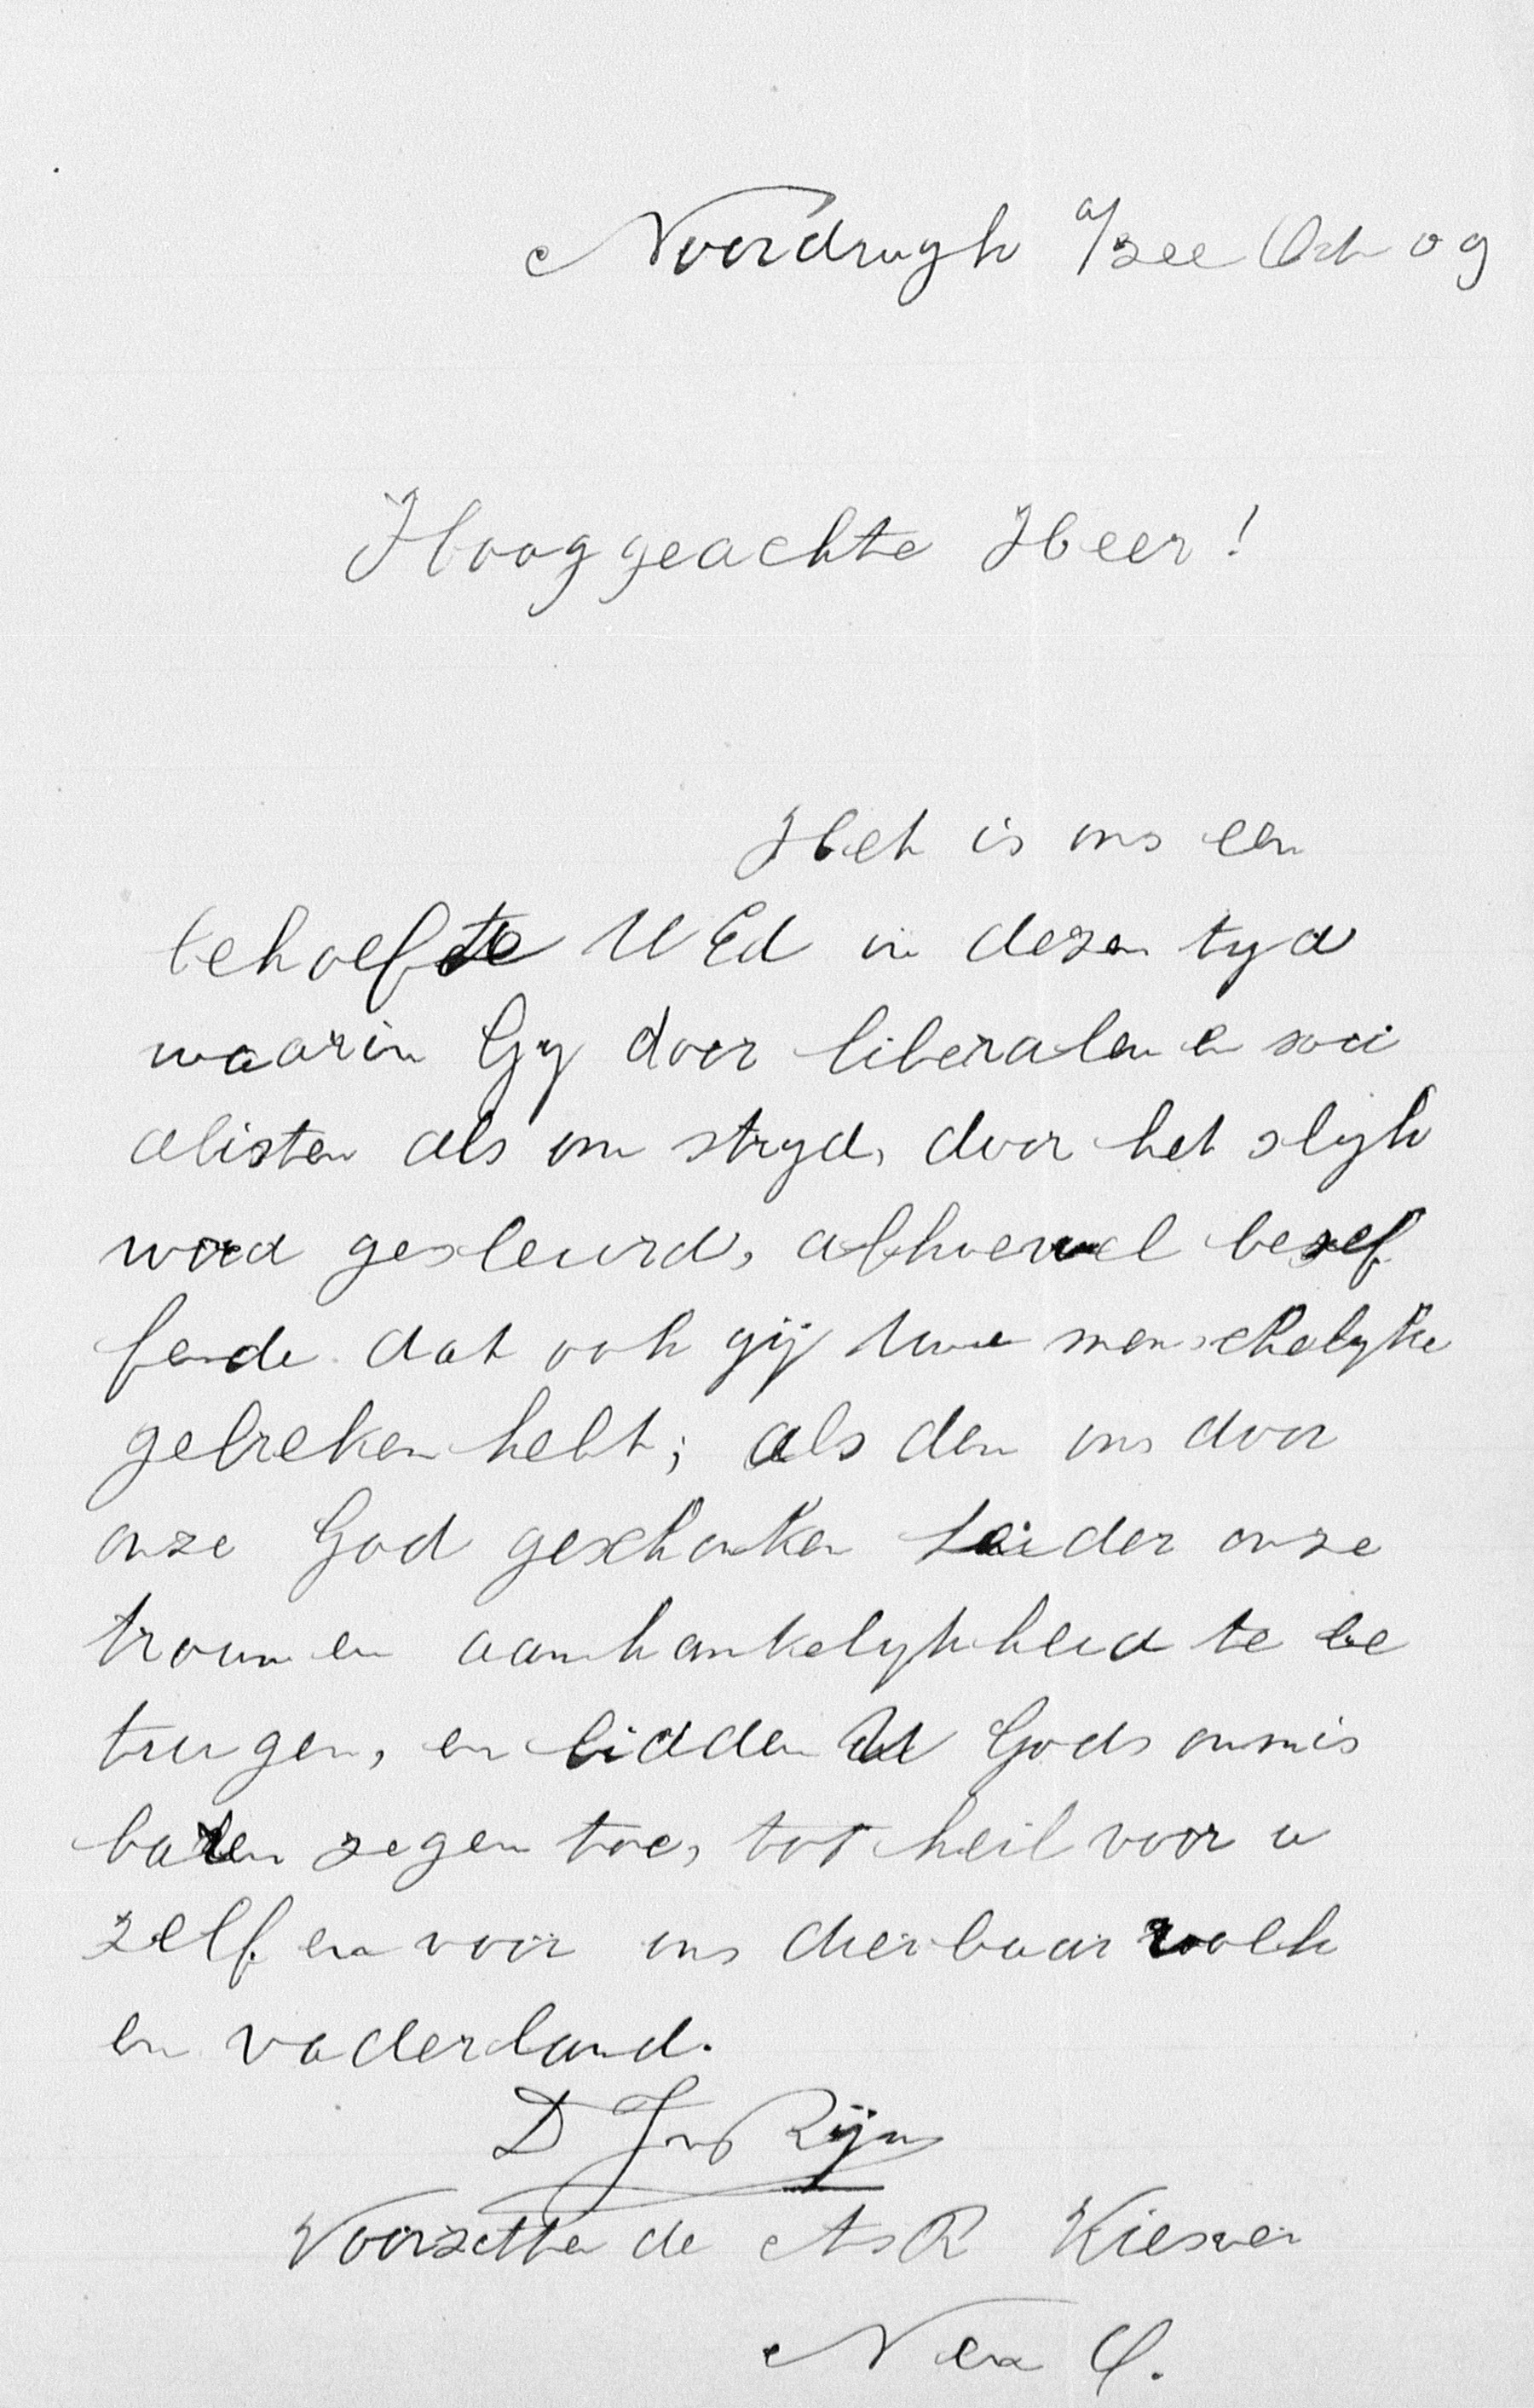 Noordwyk a/zee Oct 09
Hooggeachte Heer!
Het is ons een
behoefte UEd in dezen tyd
waarin Gy door liberalen en soci
alisten als om stryd, door het slyk
word gesleurd, alhoewel besef
fende dat ook gij Uwe menschelyke
gebreken hebt; als den ons door
onze God geschonken Leider onze
trouw en aanhankelykheid te be
tuigen, en bidden U Gods onmis
baren zegen toe, tot heil voor u
zelf en voor ons dierbaar volk
en vaderland.
D Rijn
Voorzitter de A R Kiesver
N en O.